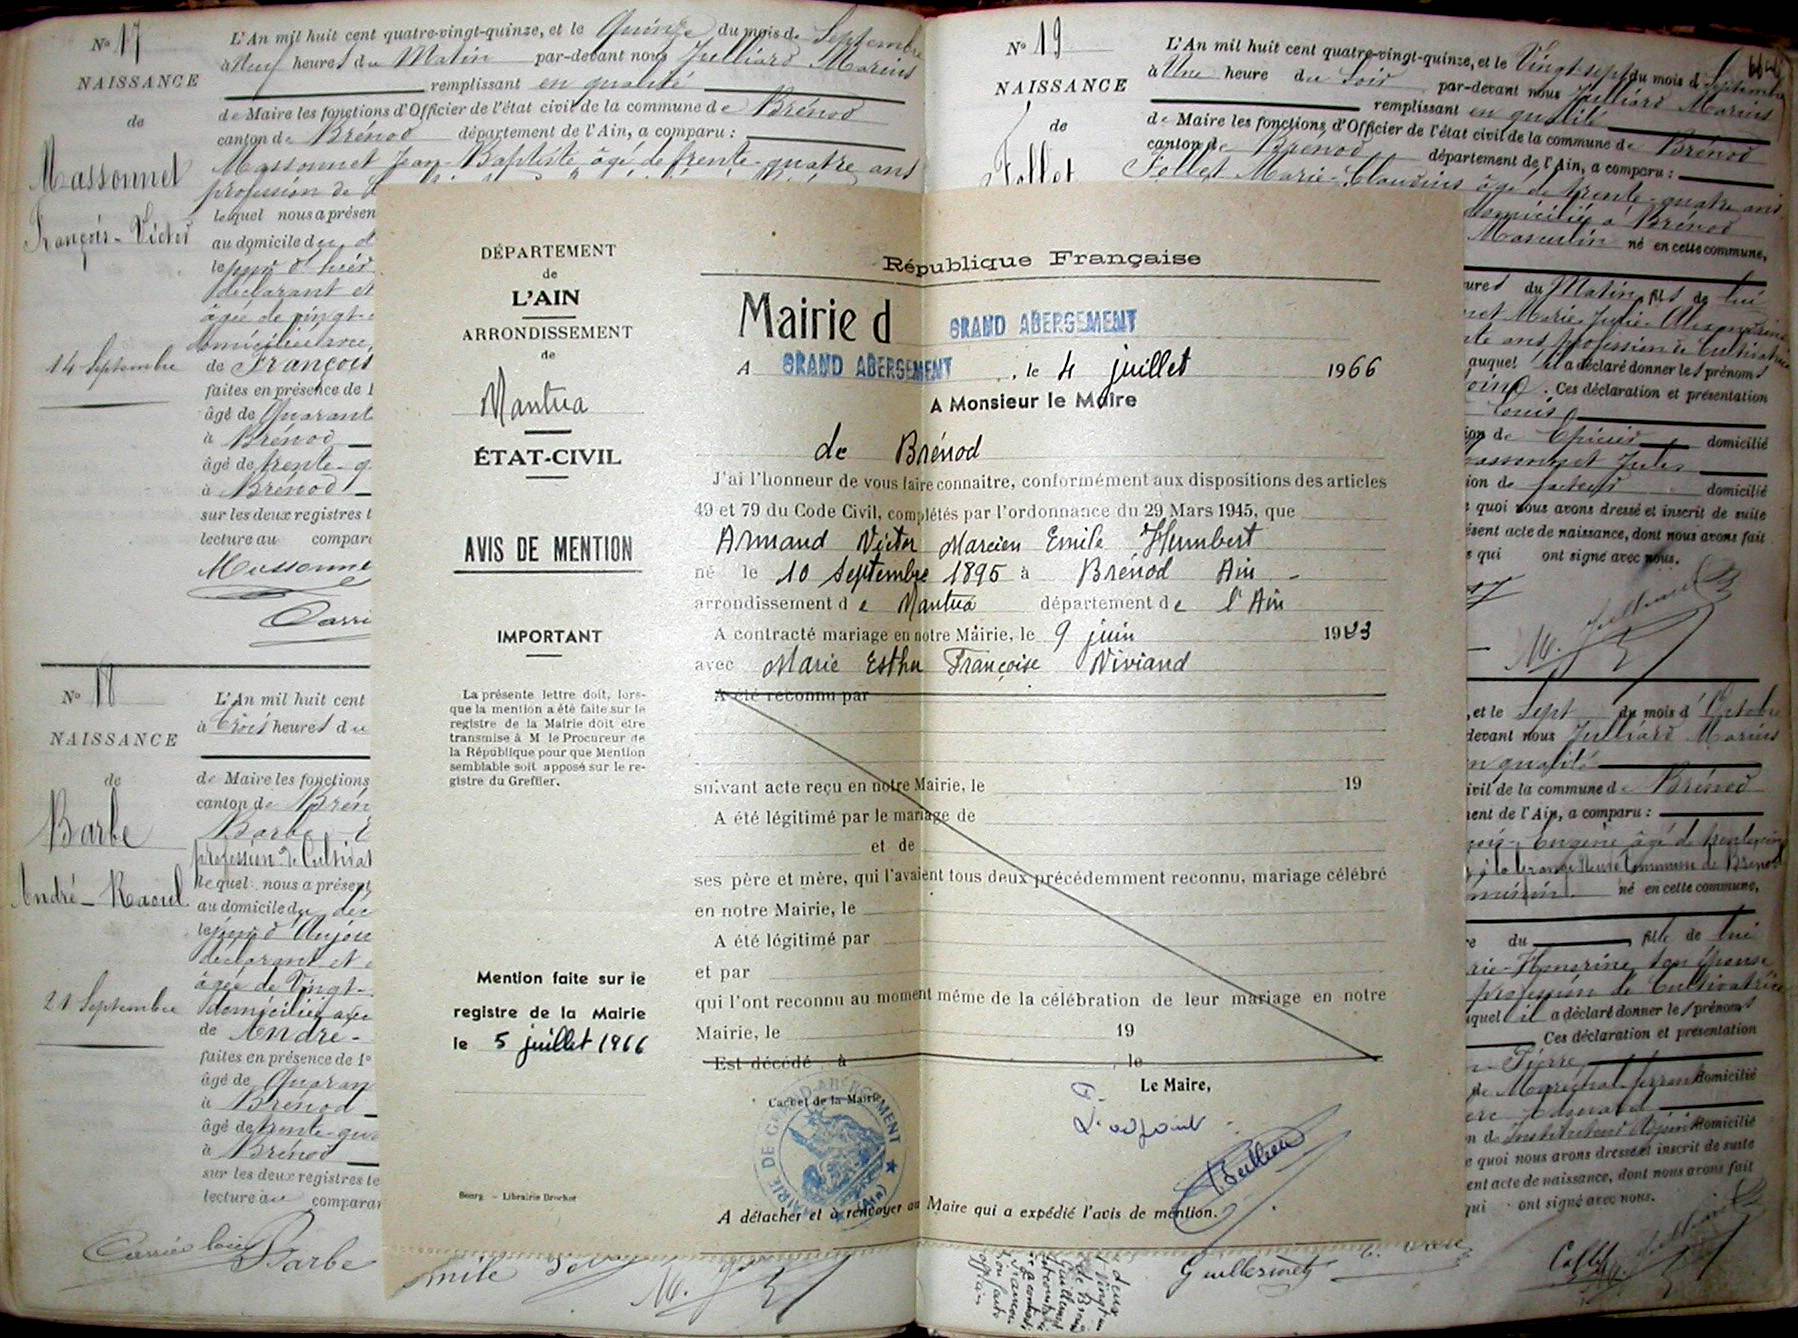 N° 17
NAISSANCE
de
Massonnet
François-Victor
14 Septembre
L'An mil huit cent quatre-vingt-quinze, et le Quinze du mois de Septembre
à Neuf heures du Matin par-devant nous Julliard Marius
remplissant en qualité
de Maire les fonctions d'Officier de l'état civil de la commune de Brénod
canton de Brénod département de l'Ain, a comparu :
Massonnet Jean-Baptiste âgé de trente-quatre ans
profession de
lequel nous a présen
au domicile du
déclarant et
âgée de vingt-
de François
faites en présence de 1
âgé de Quarant
à Brénod
âgé de trente-q
à Brénod
sur les deux registres
lecture au compar
Massonne
N° 18
NAISSANCE
de
Barbe
André-Raoul
21 Septembre
L'An mil huit cent
à Trois heures du
de Maire les fonctions
canton de Brén
Barbe
profession de Cultivat
lequel nous a présent
au domicile du déc
déclarant et
âgée de Vingt-
domiciliée avec
de André-
faites en présence de 1°
âgé de Quaran
à Brénod
âgé de trente-qua
à Brénod
sur les deux registres
lecture au comparan
Barbe
DÉPARTEMENT
de
L'AIN
ARRONDISSEMENT
de
Mantua
ÉTAT-CIVIL
AVIS DE MENTION
IMPORTANT
La présente lettre doit, lors-
que la mention a été faite sur le
registre de la Mairie doit etre
transmise à M le Procureur de
la République pour que Mention
semblable soit apposé sur le re-
gistre du Greffier.
Mention faite sur le
registre de la Mairie
le 5 juillet 1966
Bourg - Librairie Brochot
République Française
Mairie d GRAND ABERGEMENT
A GRAND ABERGEMENT, le 4 juillet 1966
A Monsieur le Maire
de Brénod
J'ai l'honneur de vous faire connaitre, conformément aux dispositions des articles
49 et 79 du Code Civil, complétés par l'ordonnance du 29 Mars 1945, que
Armand Victor Marcien Emile Humbert
né le 10 Septembre 1895 à Brénod Ain -
arrondissement de Mantua département de l'Ain
A contracté mariage en notre Mairie, le 9 juin 19
avec Marie Esther Françoise Niviand
A été reconnu par
suivant acte reçu en notre Mairie, le 19
A été légitimé par le mariage de
et de
ses père et mère, qui l'avaient tous deux précédemment reconnu, mariage célébré
en notre Mairie, le
A été légitimé par
et par
qui l'ont reconnu au moment même de la célébration de leur mariage en notre
Mairie, le 19
Est décédé à , le
Cachet de la Mairie
MAIRIE DE GRAND-ABERGEMENT
(Ain)
Le Maire,
A détacher et à renvoyer au Maire qui a expédié l'avis de mention.
N° 19
NAISSANCE
de
Follet
L'An mil huit cent quatre-vingt-quinze, et le Vingt-sept du mois d Septembre
à Une heure du Soir par-devant nous Julliard Marius
remplissant en qualité
de Maire les fonctions d'Officier de l'état civil de la commune de Brénod
canton de Brénod département de l'Ain, a comparu :
Follet Marie-Claudius âgé de trente-quatre ans
domicilié à Brénod
Masculin né en cette commune,
ures du Matin fils de lui
Marie-Julie-Alexandrine
te ans profession de Cultivatrice
auquel il a déclaré donner les prénoms
Ces déclaration et présentation
Louis
ion de Epicier domicilié
assonnet Jules
ion de facteur domicilié
quoi nous avons dressé et inscrit de suite
ésent acte de naissance, dont nous avons fait
qui ont signé avec nous.
, et le Sept du mois d'Octobre
devant nous Julliard Marius
n qualité
ivil de la commune de Brénod
ent de l'Ain, a comparu :
Eugène âgé de trente-cinq
Commune de Brénod
né en cette commune,
du fille de lui
rie-Honorine son épouse
profession de Cultivatrice
quel il a déclaré donner les prénoms
Ces déclaration et présentation
Pierre
de Maréchal-ferrant domicilié
n de Instituteur Adjoint domicilié
quoi nous avons dressé et inscrit de suite
ent acte de naissance, dont nous avons fait
qui ont signé avec nous.
Guillermet